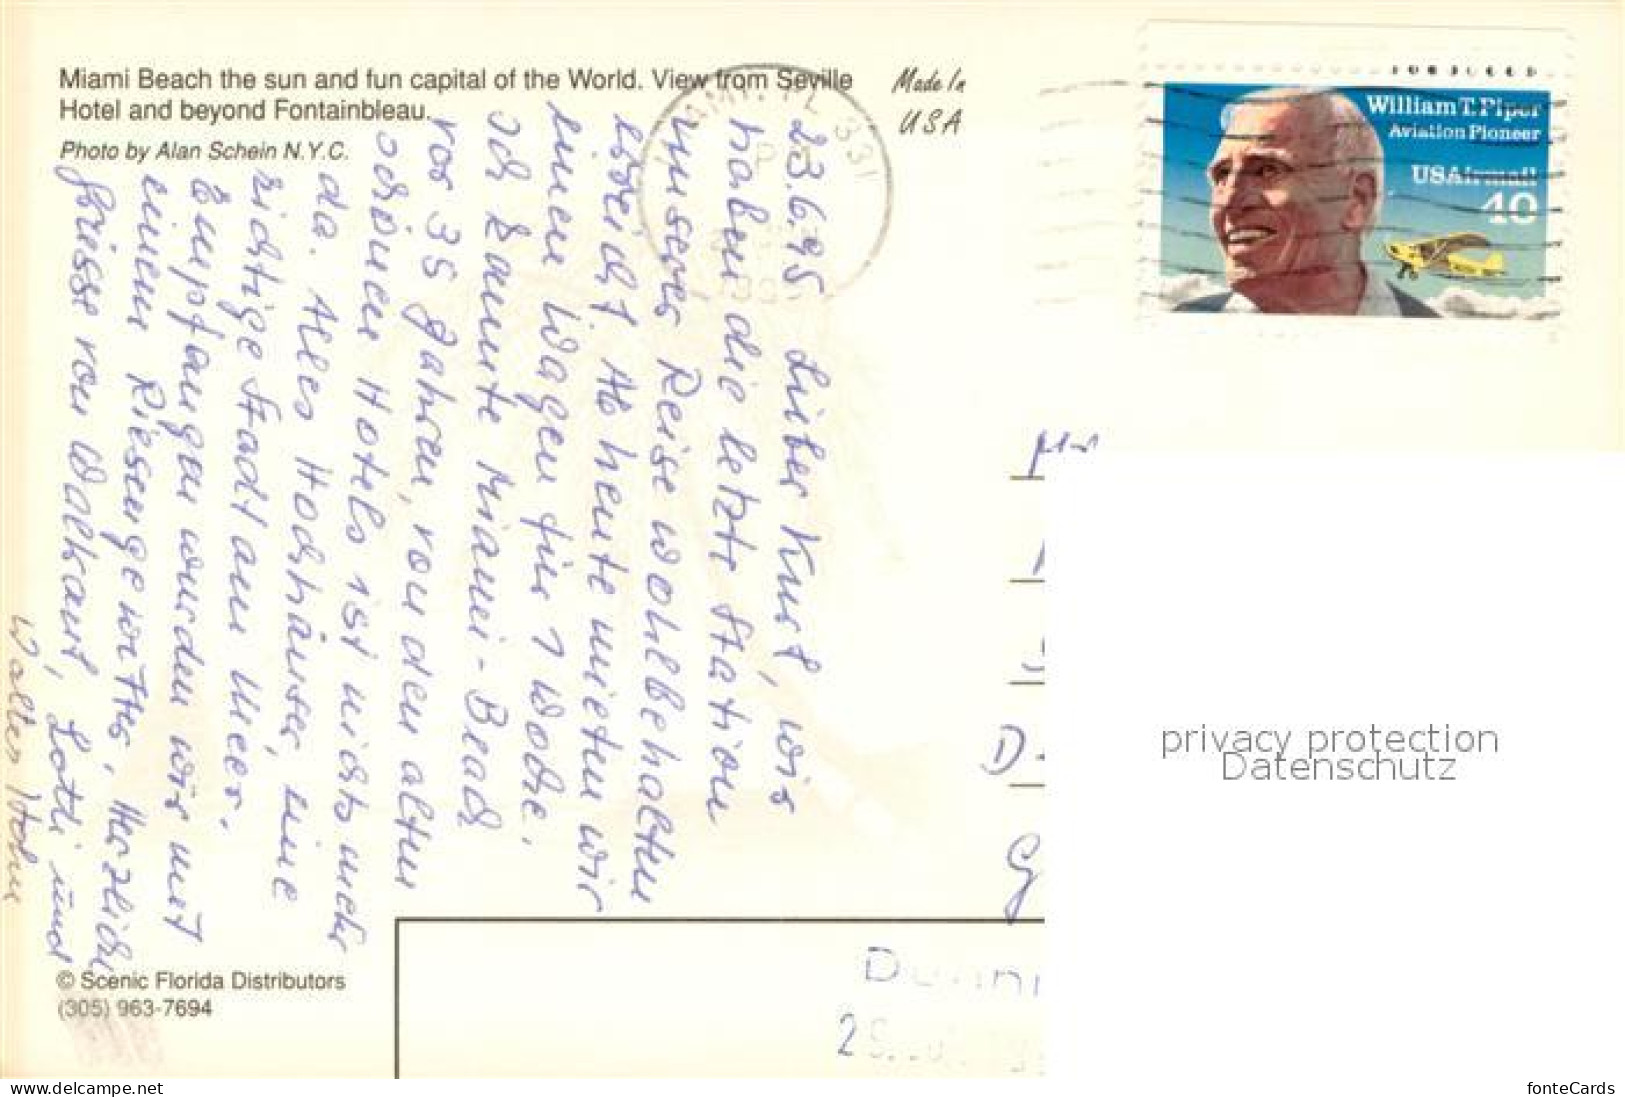 Miami Beach the sun and fun capital of the World. View from Seville
Hotel and beyond Fontainbleau.
Photo by Alan Schein N.Y.C.
Made In
USA
William T. Piper
Aviation Pioneer
USAirmail
40
MIAMI, FL 331
23.6.95 Lieber Kurt, wir
haben die letzte Station
unserer Reise wohlbehalten
erreicht. Ab heute mieten wir
einen Wagen für 1 Woche.
Ich kannte Miami-Beach
vor 35 Jahren, von den alten
schönen Hotels ist nichts mehr
da. Alles Hochhäuser, eine
richtige Stadt am Meer.
Empfangen wurden wir mit
einem Riesengewitter. Herzliche
Grüsse von Walkaut, Lotti und
Walter Hohn
D-
G
privacy protection
Datenschutz
© Scenic Florida Distributors
(305) 963-7694
www.delcampe.net
fonteCards